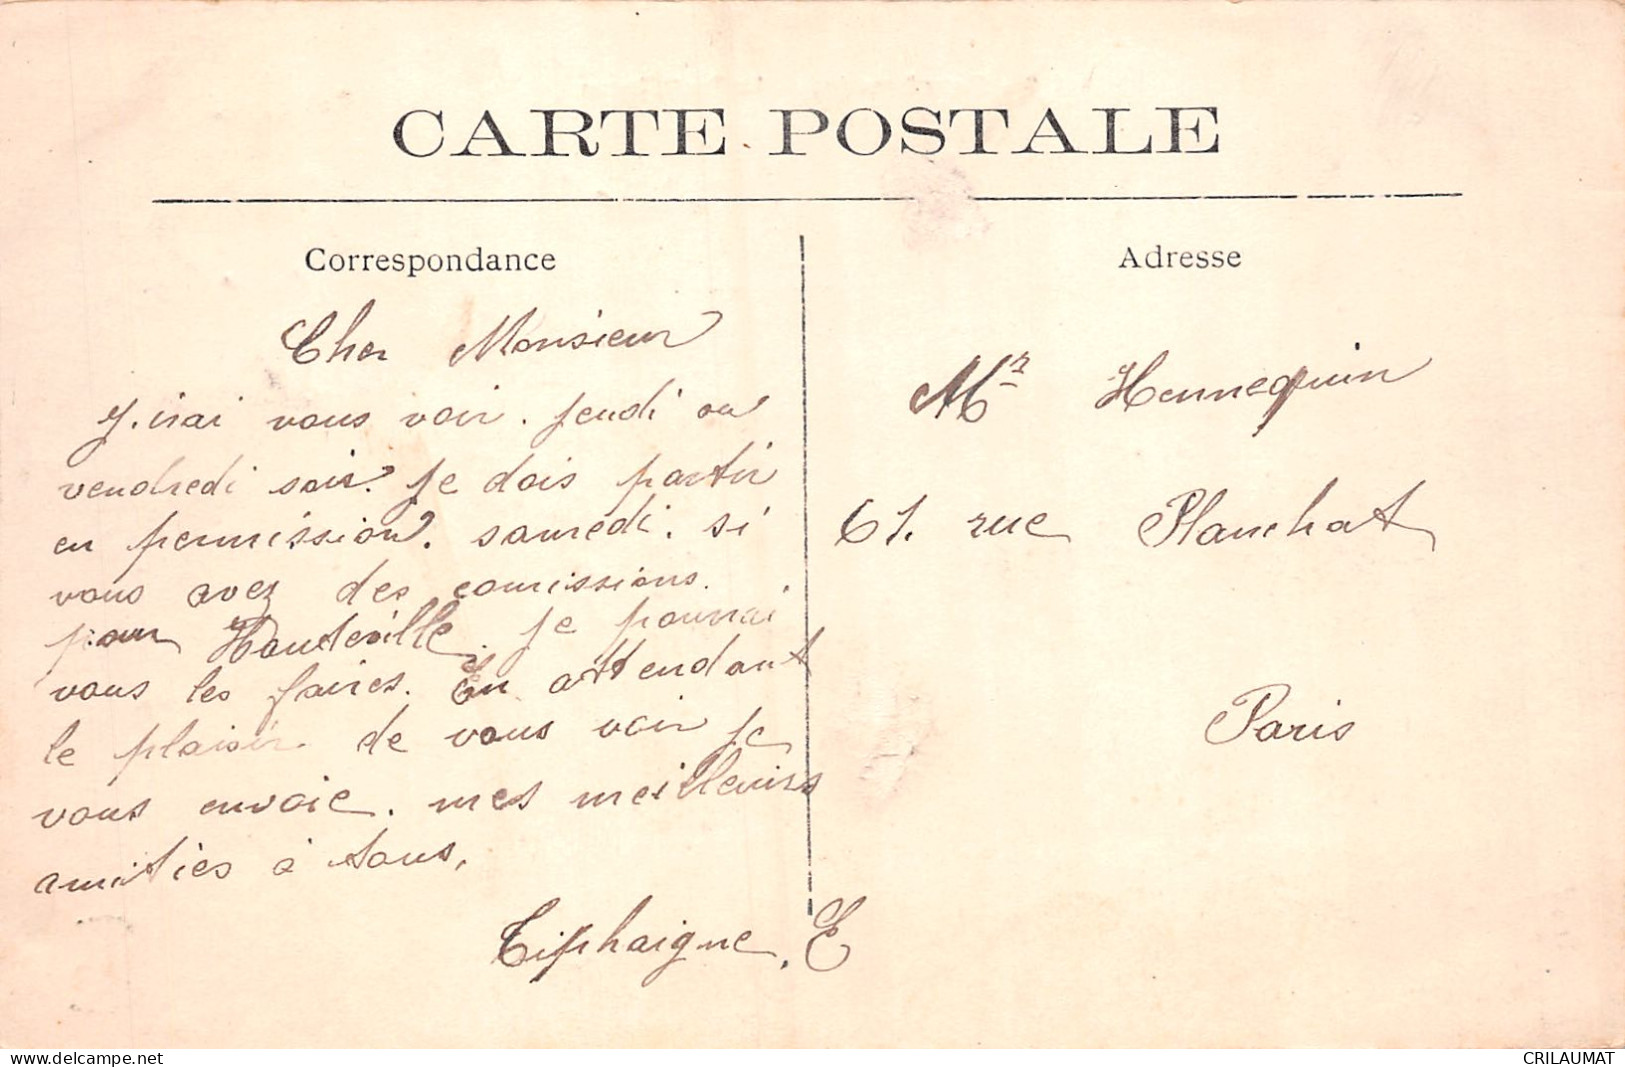 CARTE POSTALE
Correspondance
Cher Monsieur
J.irai vous voir. jeudi ou
vendredi soir. je dois partir
en permission. samedi. si
vous avez des comissions.
pour Hauteville. je pourrai
vous les faires. En attendant
le plaisir de vous voir je
vous envoie. mes meilleuirs
amitiés à tous.
Tiphaigne. E
Adresse
Mr Hennequin
61. rue Planchat
Paris
www.delcampe.net
CRILAUMAT